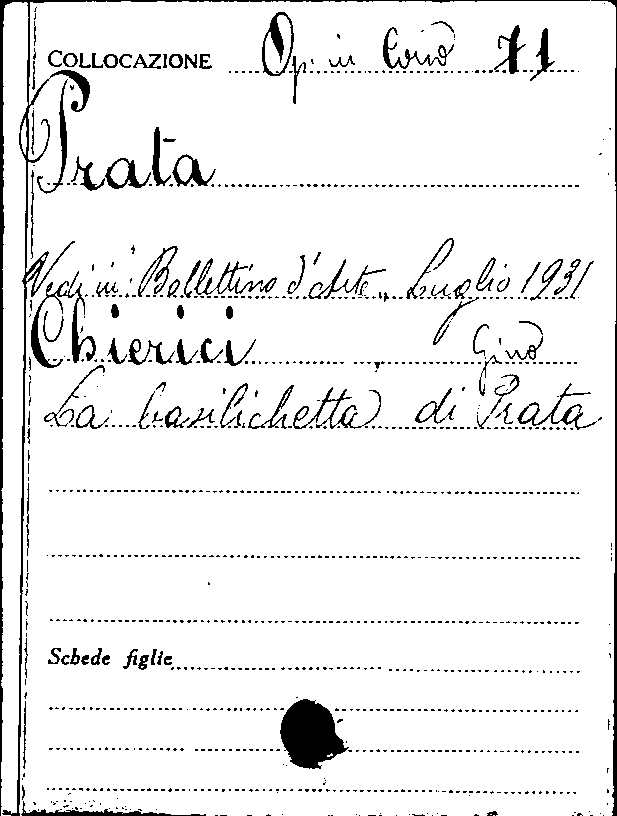 COLLOCAZIONE Op. in Corso 71
Prata
Vedi in "Bollettino d'Arte„ Luglio 1931
Chierici , Gino
La basilichetta di Prata
Schede figlie